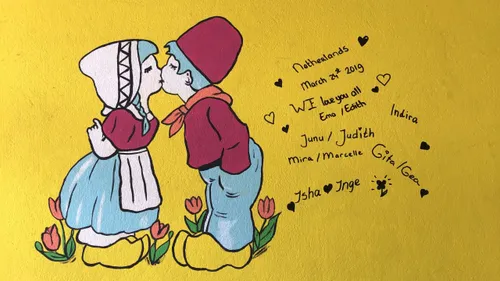 Netherlands
March 29th 2019
WI love you all
Ema / Edith
Indira
Junu / Judith
Mira / Marcelle
Gita / Gea
Isha ♥ Inge